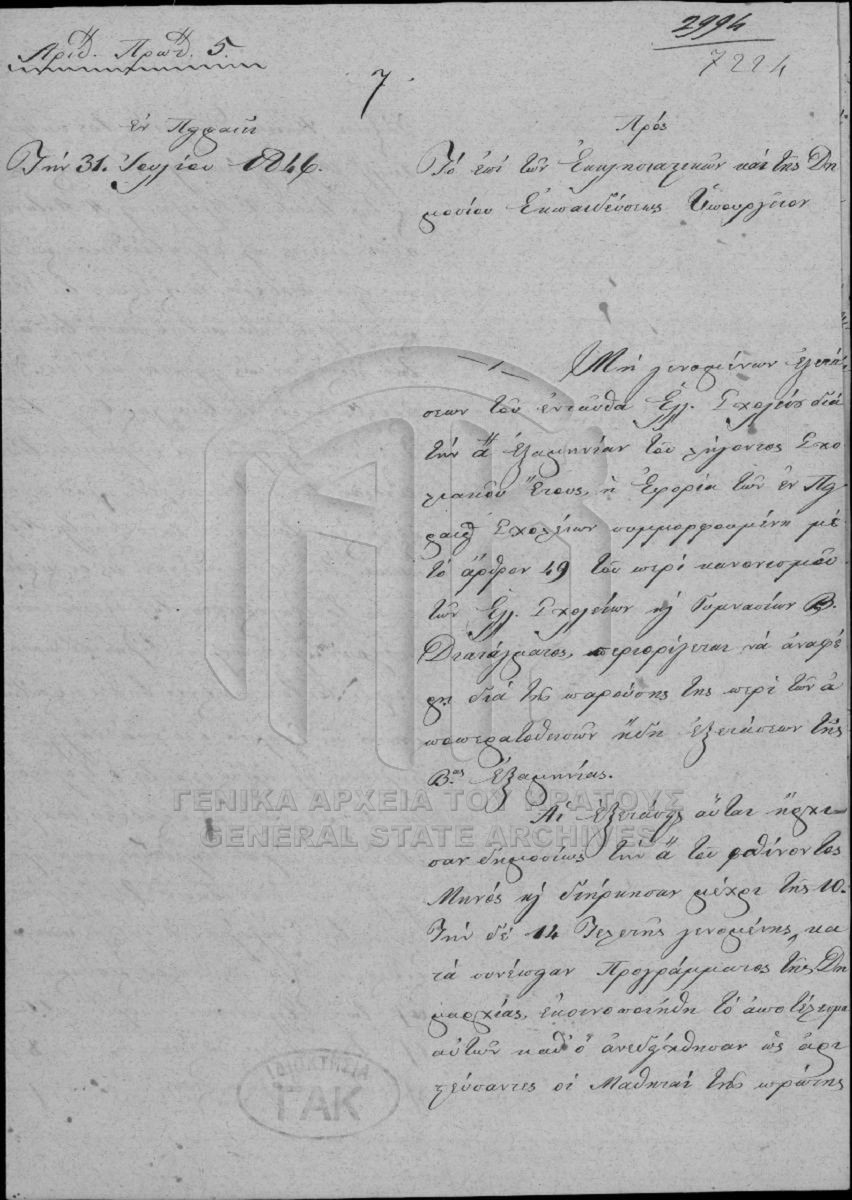 2994
7224
Ἀριθ. Πρωτ. 5.
7
ἐν Πειραιεῖ
Τὴν 31. Ἰουλίου 1846.
Πρὸς
Τὸ ἐπὶ τῶν Ἐκκλησιαστικῶν καὶ τῆς Δη
μοσίου Ἐκπαιδεύσεως Ὑπουργεῖον
Μὴ γενομένων ἐξετά
σεων τοῦ ἐνταῦθα Ἑλλ. Σχολείου διὰ
τὴν αʹ ἑξαμηνίαν τοῦ λήγοντος Σχο
λιακοῦ Ἔτους, ἡ Ἐφορία τῶν ἐν Πει
ραιεῖ Σχολείων συμμορφουμένη μὲ
τὸ ἄρθρον 49 τοῦ περὶ κανονισμοῦ
τῶν Ἑλλ. Σχολείων κ Γυμνασίων Β.
Διατάγματος, περιορίζεται νὰ ἀναφέ
ρῃ διὰ τῆς παρούσης της περὶ τῶν ἀ
ποπερατωθεισῶν ἤδη ἐξετάσεων τῆς
Β.ας Ἑξαμηνίας.
Αἱ Ἐξετάσεις αὗται ἤρχι
σαν δημοσίως τὴν αʹ τοῦ φθίνοντος
Μηνὸς κ διήρκησαν μέχρι τῆς 10.
Τὴν δὲ 14 Τελετῆς γενομένης, κα
τὰ συνέπειαν Προγράμματος τῆς Δη
μαρχίας, ἐκοινοποιήθη τὸ ἀποτέλεσμα
αὐτῶν καθ' ὃ ἀνεδείχθησαν ὡς ἀρι
στεύσαντες οἱ Μαθηταὶ τῆς πρώτης
ΓΕΝΙΚΑ ΑΡΧΕΙΑ ΤΟΥ ΚΡΑΤΟΥΣ
GENERAL STATE ARCHIVES
ΙΔΙΟΚΤΗΣΙΑ
ΓΑΚ